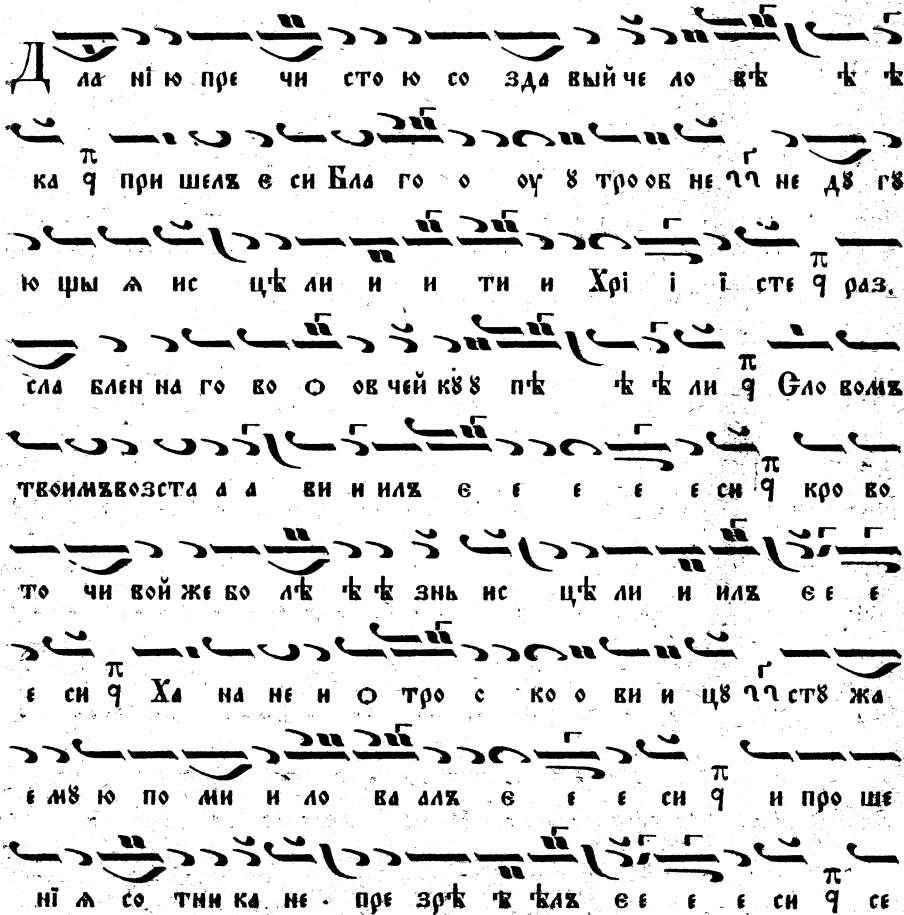 Дла нїю пре чи стою со зда вый че ло вѣ ѣ ѣ
ка при шелъ є си Бла го о оу ꙋ тро об не не дꙋ гꙋ
ю щы ѧ ис цѣ ли и и ти и Хрі і ї сте раз.
сла блен на го во ѻ ов чей кꙋ ꙋ пѣ ѣ ѣ ли Сло вомъ
твоимъ возста а а ви и илъ є е е е е си кро во
то чи вой же бо лѣ ѣ ѣ знь ис цѣ ли и илъ є е е
е си Ха на не и ѻ тро с ко о ви и цꙋ стꙋ жа
е мꙋ ю по ми и ло ва алъ є е е си и про ше
нї ѧ со тни ка не . пре зрѣ ѣ ѣлъ є е е е си се